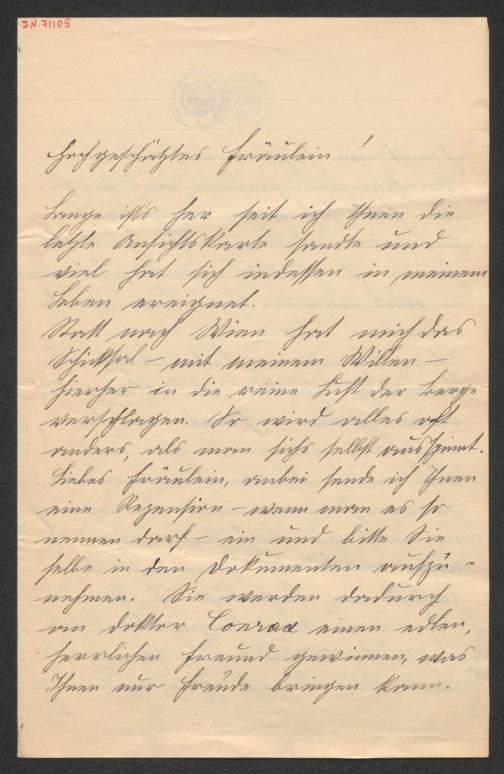 J.N. 71105
Hochgeschätztes Fräulein!
Lange ist's her seit ich Ihnen die
letzte Ansichtskarte sandte und
viel hat sich indessen in meinem
Leben ereignet.
Statt nach Wien hat mich das
Schicksal – mit meinem Willen –
hierher in die reine Luft der Berge
verschlagen. So wird alles oft
anders, als man sichs selbst ausspinnt.
Liebes Fräulein, anbei sende ich Ihnen
eine Rezension – wenn man es so
nennen darf – ein und bitte Sie
selbe in den Dokumenten aufzu-
nehmen. Sie werden dadurch
an Doktor Conrad einen edlen,
herrlichen Freund gewinnen, was
Ihnen nur Freude bringen kann.